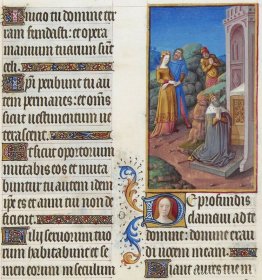 Inicio tu domine ter
ram fundasti: et opera
manuum tuarum sunt
celi.
Ipsi peribunt tu au
tem permanes: et omnes
sicut vestimentum ve
terascent.
Et sicut opertorium
mutabis eos et muta
buntur tu autem idem
ipse es et anni tui non de
ficient.
Filij servorum tuo
rum habitabunt et se
men eorum in seculum
De profundis
clamavi ad te
domine: domine exau
di vocem meam.
fiant aures tue in